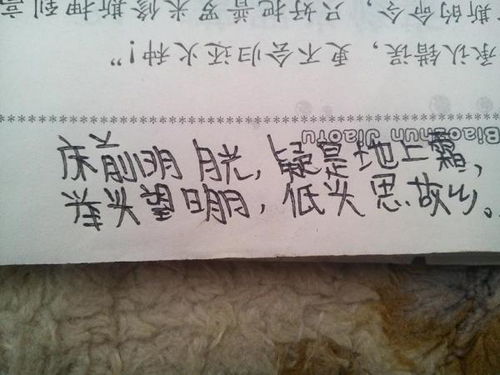 承认错误，更不会归还火种！”
斯的命令，只好把普罗米修斯押到高
Biaozhun Jiaofu
床前明月光，疑是地上霜，
举头望明月，低头思故乡。